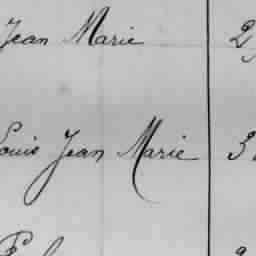 Jean Marie 2
Louis Jean Marie 3